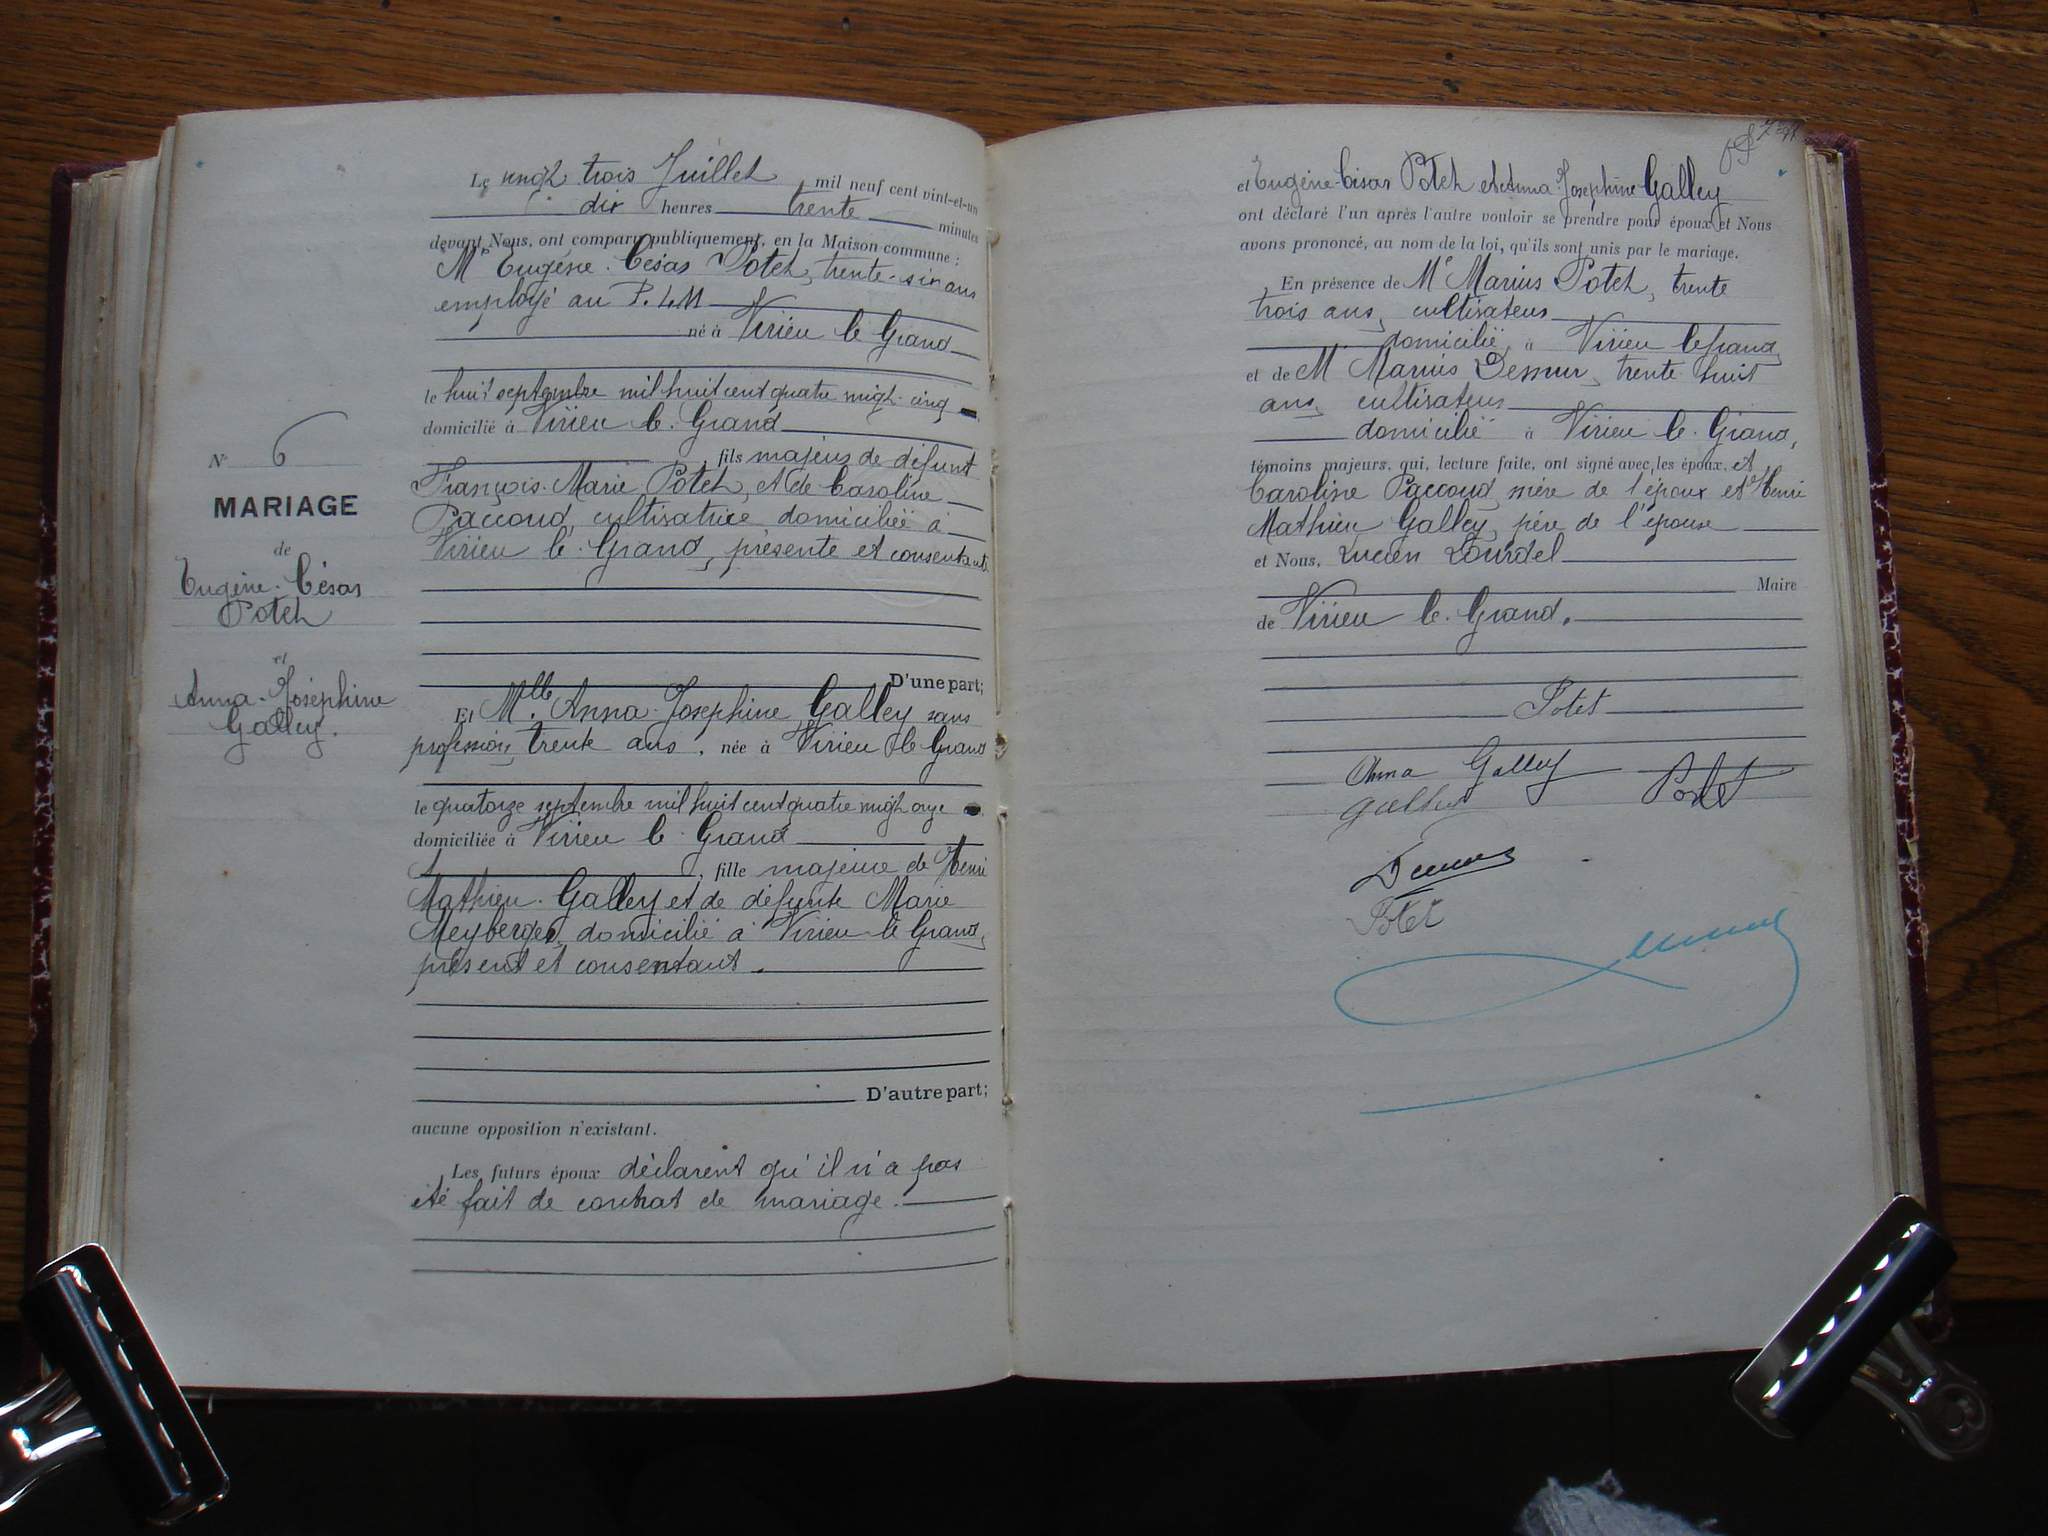 Le vingt trois Juillet mil neuf cent vint-et-un
dix heures trente minutes
devant Nous, ont comparu publiquement, en la Maison commune :
Mr Eugène-César Potet, trente-six ans
employé au P.L.M
né à Virieu le Grand
le huit septembre mil huit cent quatre vingt-cinq
domicilié à Virieu-le-Grand
fils majeur de défunt
François-Marie Potet, et de Caroline
Paccoud, cultivatrice domiciliée à
Virieu-le-Grand, présente et consentante
D'une part;
Et Mlle Anna-Josephine Galley sans
profession, trente ans, née à Virieu-le-Grand
le quatorze septembre mil huit cent quatre vingt onze
domiciliée à Virieu-le-Grand
, fille majeure de Henri
Mathieu-Galley et de défunte Marie
Meyberger, domicilié à Virieu-le-Grand,
présent et consentant.
D'autre part;
aucune opposition n'existant.
Les futurs époux déclarent qu'il n'a pas
été fait de contrat de mariage.
N° 6
MARIAGE
de
Eugène-César
Potet
et
Anna-Joséphine
Galley.
et Eugène-César Potet et Anna-Joséphine Galley
ont déclaré l'un après l'autre vouloir se prendre pour époux et Nous
avons prononcé, au nom de la loi, qu'ils sont unis par le mariage.
En présence de Mr Marius Potet, trente
trois ans, cultivateur
domicilié à Virieu le grand,
et de M Marius Dessur, trente huit
ans, cultivateur
domicilié à Virieu-le-Grand,
témoins majeurs, qui, lecture faite, ont signé avec les époux, et
Caroline Paccoud, mère de l'époux et Henri
Mathieu Galley, père de l'épouse
et Nous, Lucien Lourdel
Maire
de Virieu-le-Grand.
Potet
Anna Galley
Galley Potet
Potet